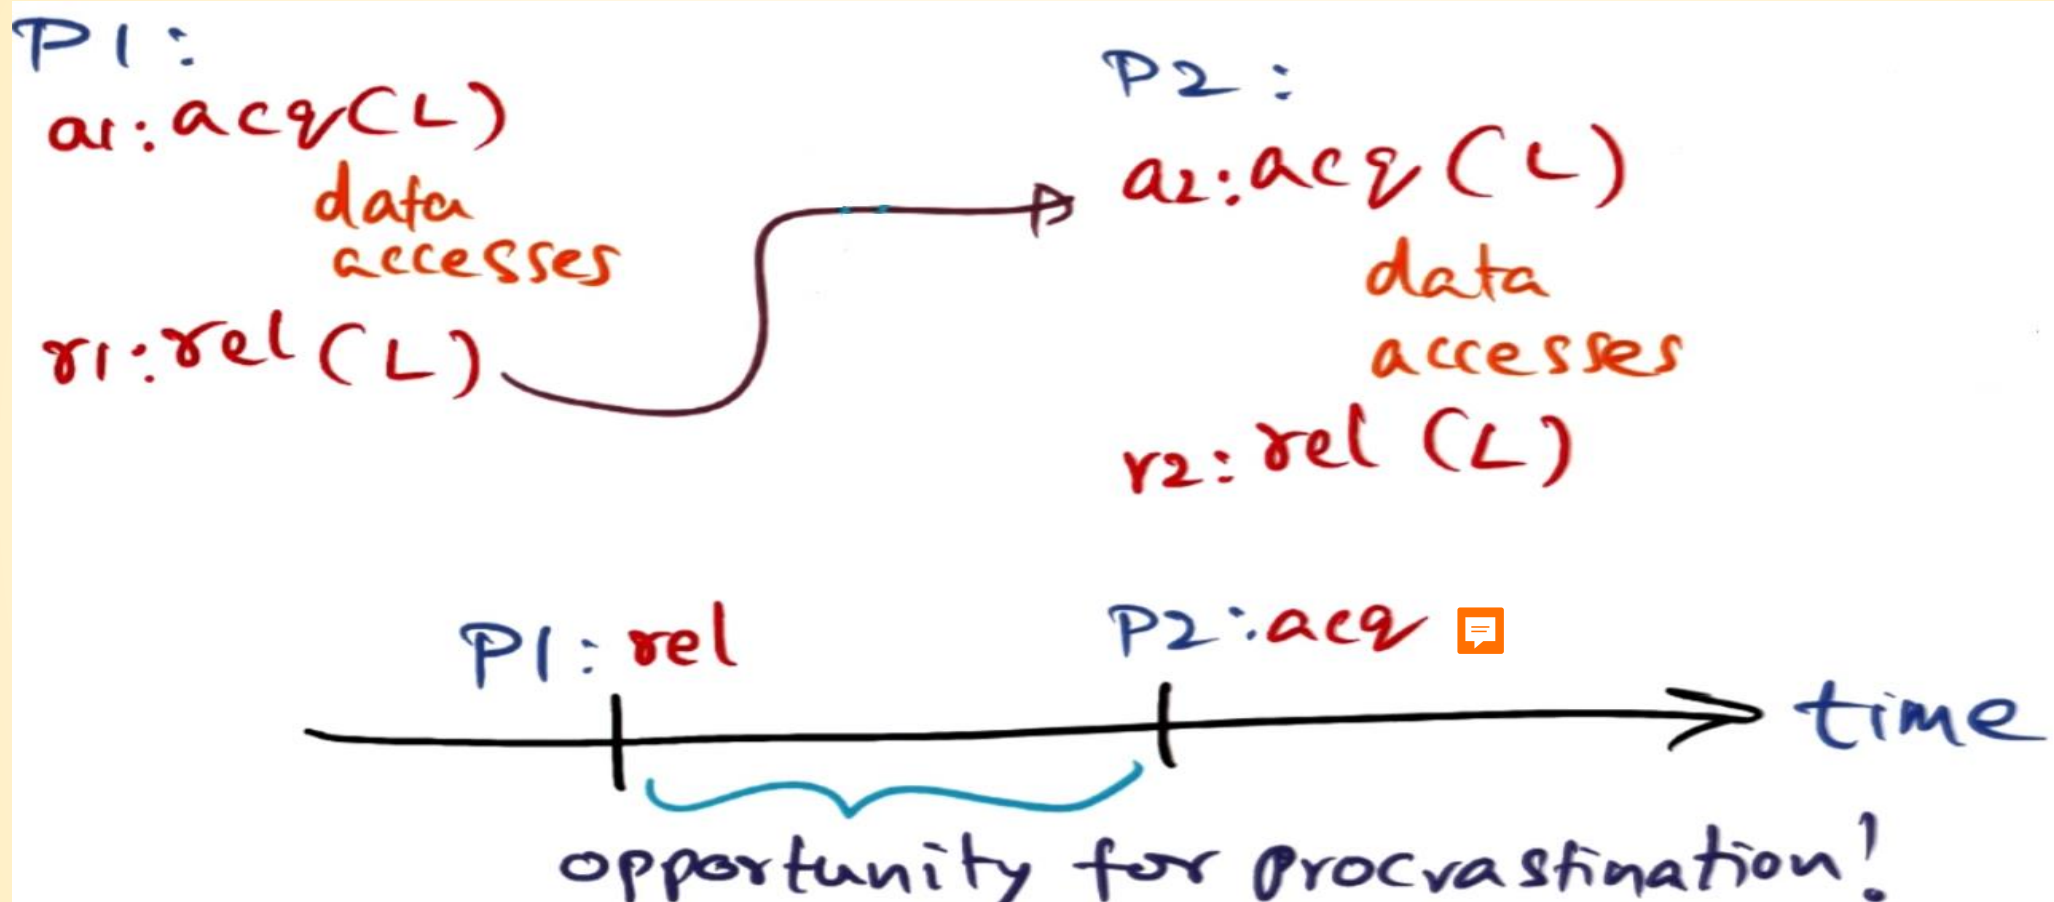 P1:
a1: acq(L)
data
accesses
r1: rel(L)
P2:
a2: acq(L)
data
accesses
r2: rel(L)
P1: rel
P2: acq
time
opportunity for procrastination!